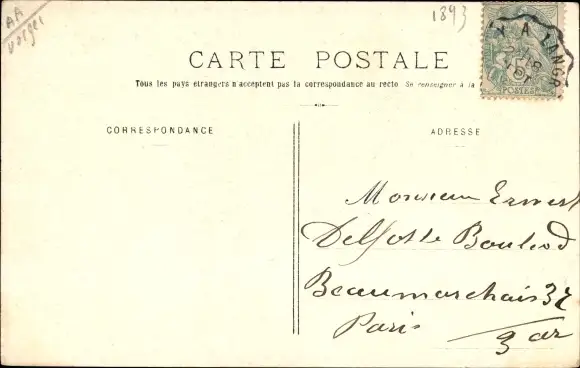 AA
Vosges
1893
CARTE POSTALE
Tous les pays étrangers n'acceptent pas la correspondance au recto Se renseigner à la
CORRESPONDANCE
ADRESSE
A LANGR
POSTES
Monsieur Ernest
Boulevd
Beaumarchais 37
Paris
3 ar